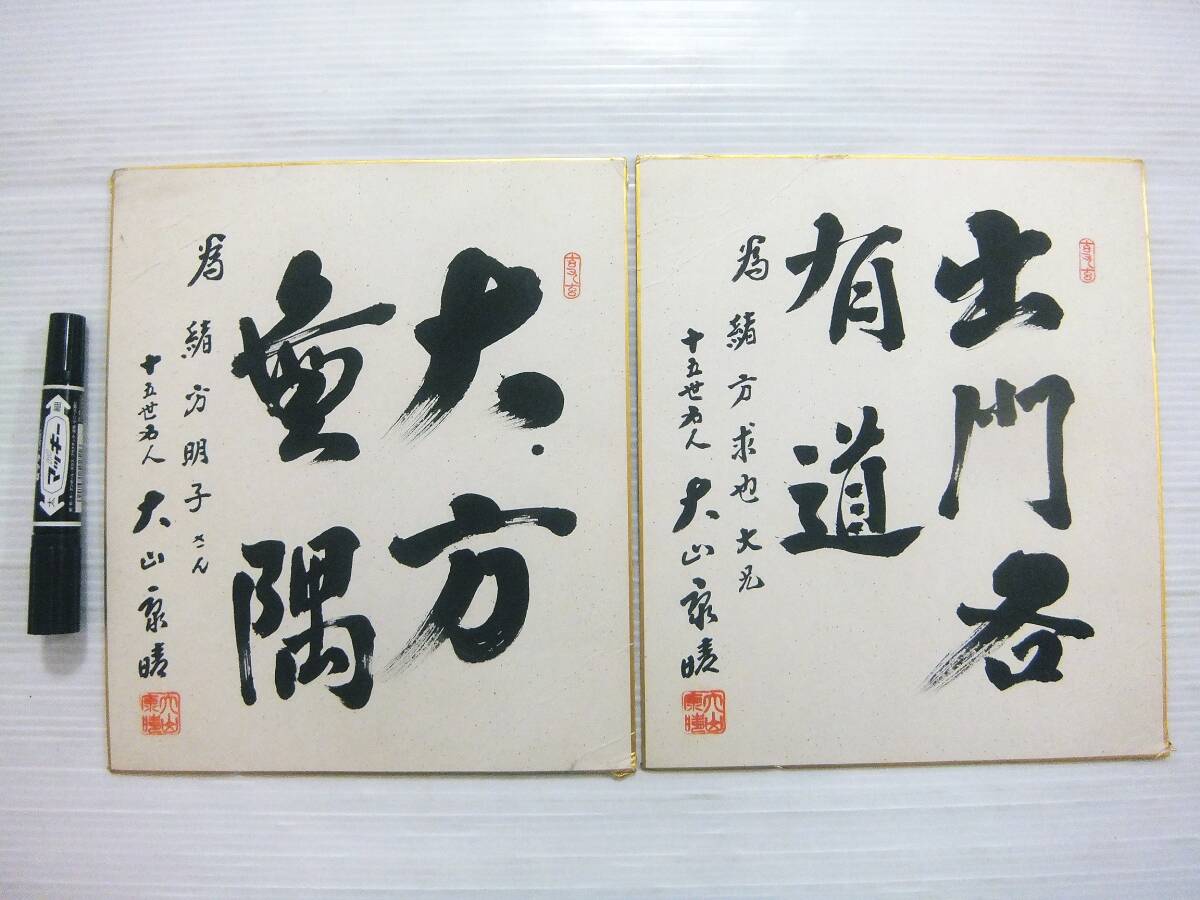 出門各
有道
為 緒方求也大兄
十五世名人 大山康晴
大山康晴
大方
無隅
為 緒方明子さん
十五世名人 大山康晴
大山康晴
マッキー
太